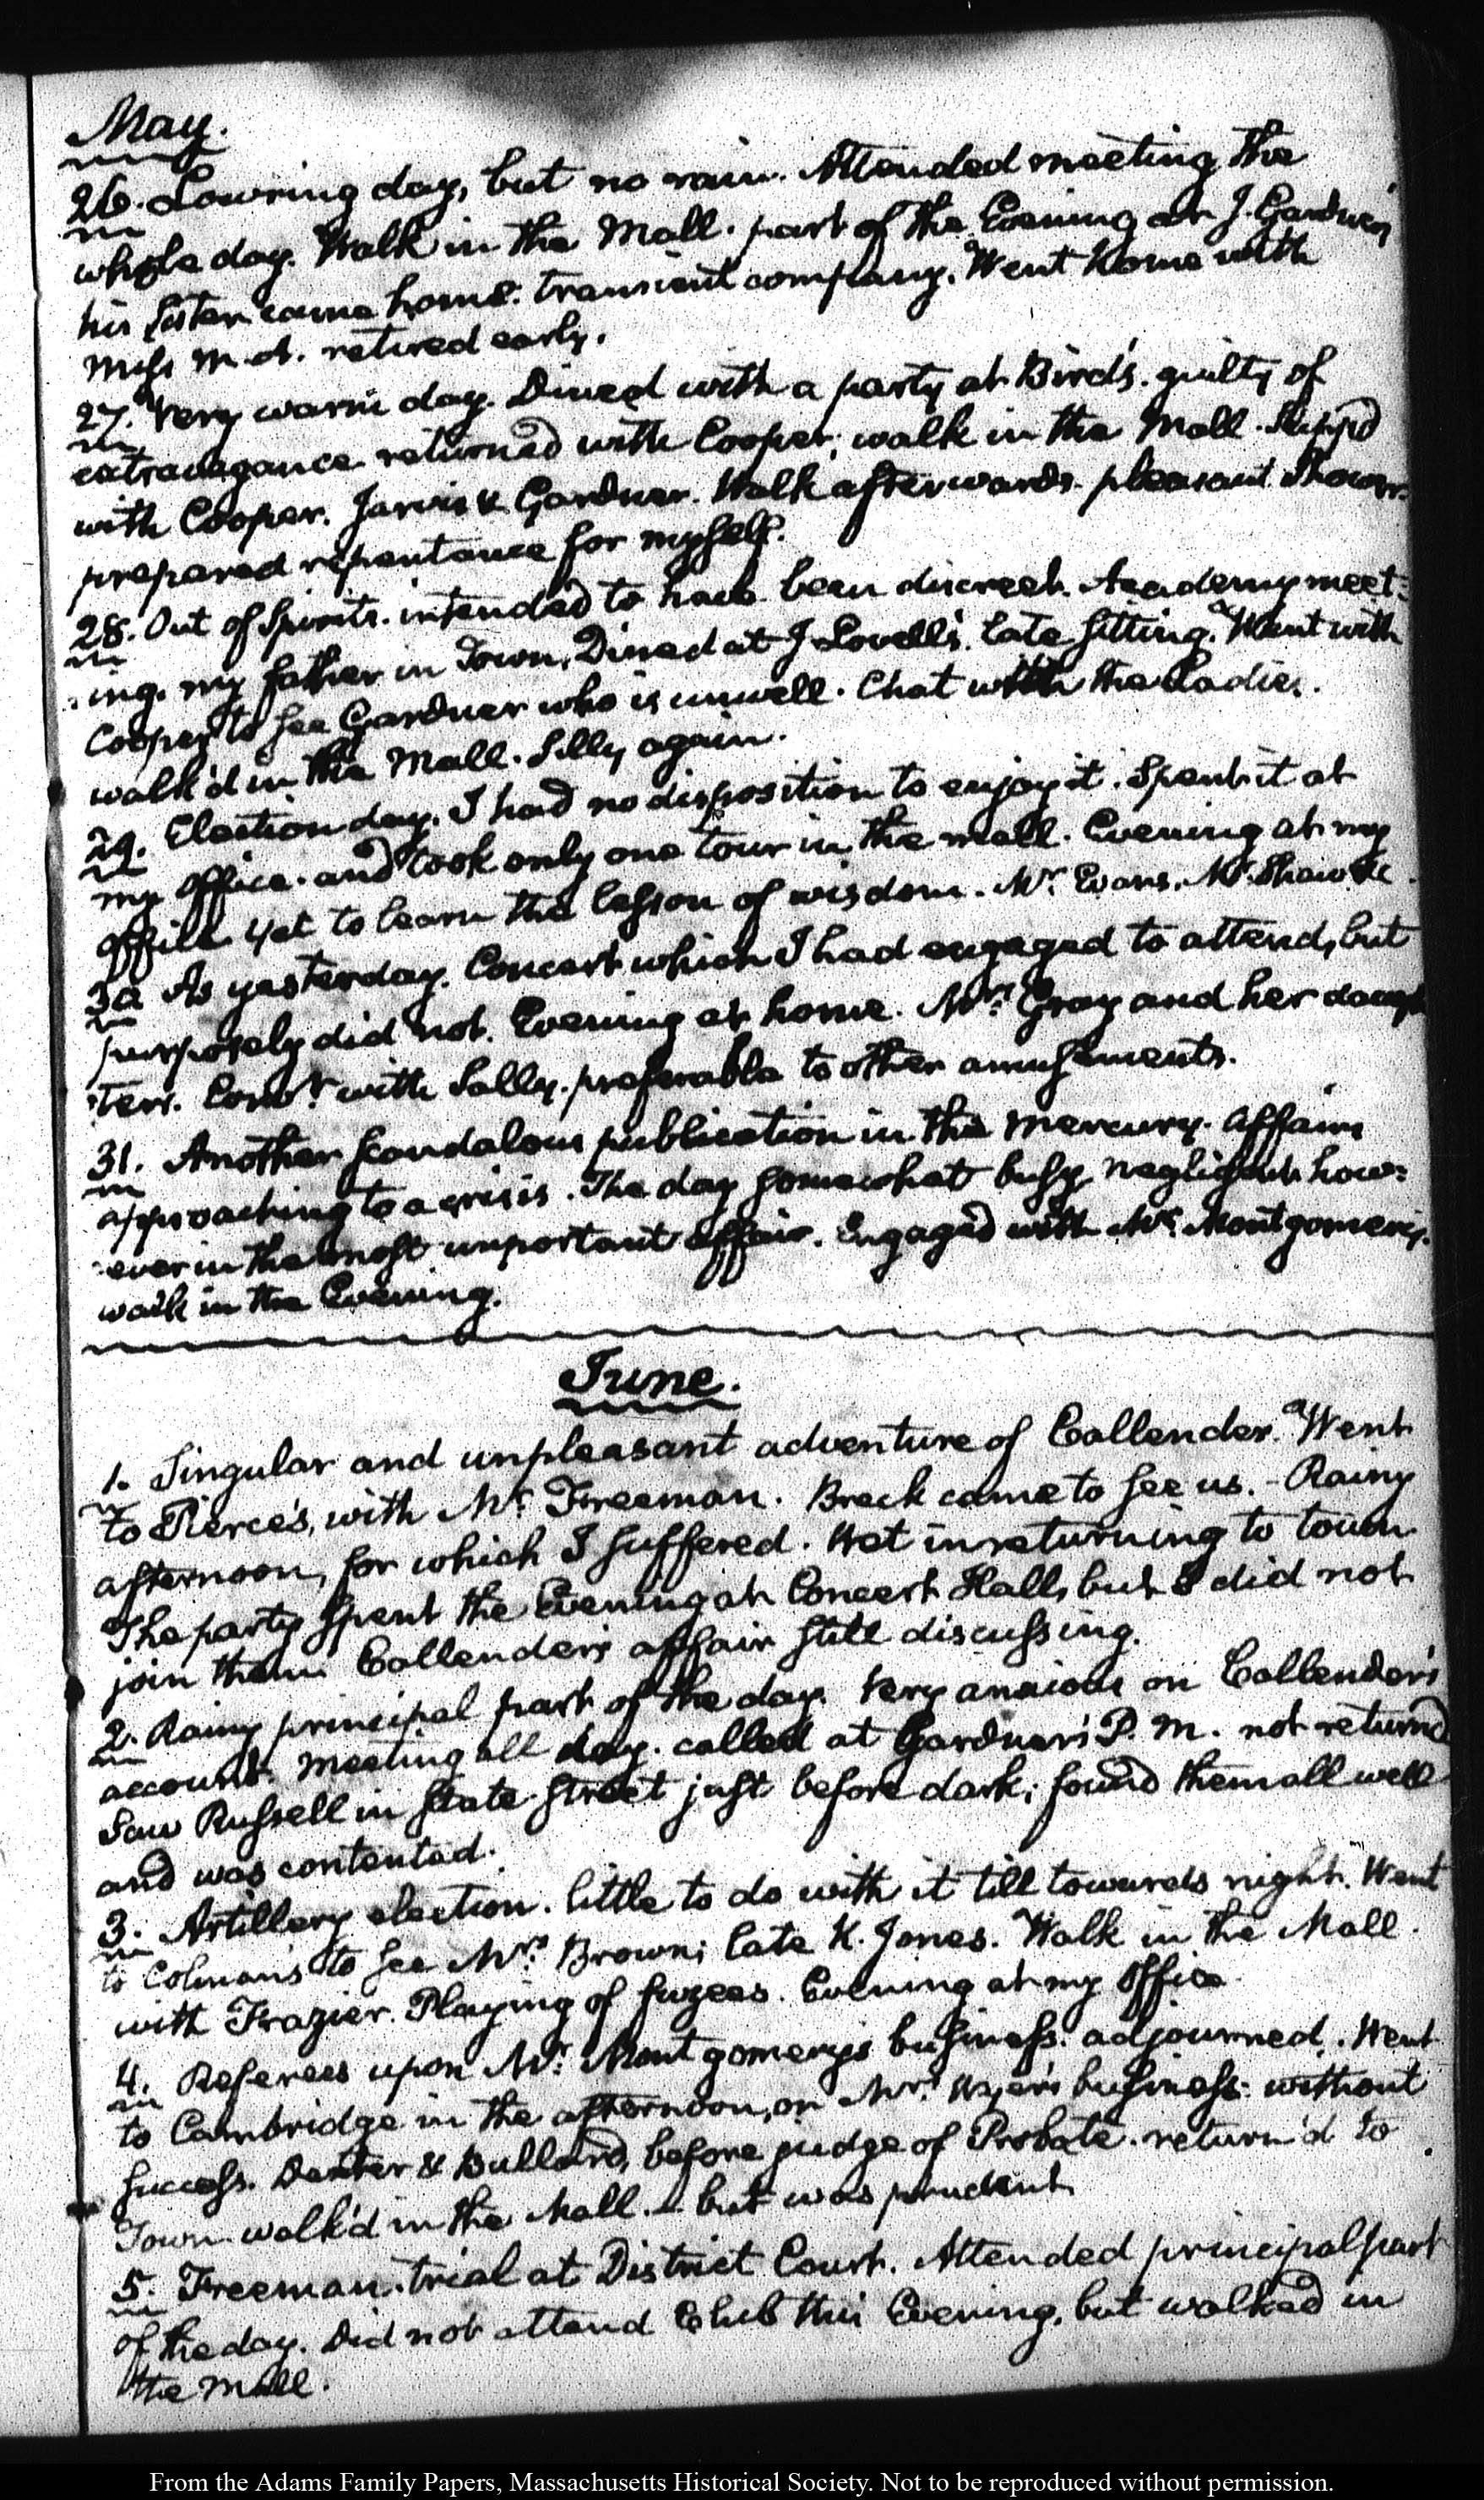 May.
26. Lowring day, but no rain. Attended meeting the
whole day. Walk in the Mall. part of the Evening at J. Gardner,
his sister came home. transient company. Went home with
Miss M. A. retired early.
27. Very warm day. Dined with a party at Bird's. guilty of
extravagance. returned with Cooper; walk in the Mall. Supp'd
with Cooper. Jarvis & Gardner. Walk afterwards. pleasant. Shower.
prepared repentance for myself.
28. Out of Spirits. intended to have been discreet. Academy meet-
ing. my father in Town. Dined at J Lovell's. late sitting. Went with
Cooper to see Gardner who is unwell. Chat with the Ladies.
walk'd in the Mall. Silly again.
29. Election day. I had no disposition to enjoy it. Spent it at
my office. and took only one tour in the mall. Evening at my
office yet to learn the lesson of wisdom. Mr. Evans. Mr. Shaw &c.
30 As yesterday. Concert which I had engaged to attend, but
purposely did not. Evening at home. Mrs. Gray and her daugh
ters. Convn. with Sally. preferable to other amusements.
31. Another scandalous publication in the Mercury. affairs
approaching to a crisis. The day somewhat busy, negligent how-
ever in the most important affair. Engaged with Mr. Montgomery.
walk in the Evening.
June.
1. Singular and unpleasant adventure of Callender. Went
to Pierce's, with Mr. Freeman. Breck came to see us. - Rainy
afternoon, for which I suffered. Wet in returning to town.
The party spent the Evening at Concert Hall, but I did not
join them. Callender's affair still discussing.
2. Rainy principal part of the day. Very anxious on Callender's
account. Meeting all day. called at Gardner's P. M. not returnd
Saw Russell in State Street just before dark; found them all well
and was contented.
3. Artillery election. little to do with it till towards night. Went
to Colman's to see Mrs. Brown; late K. Jones. Walk in the Mall
with Frazier. Playing of fuzees. Evening at my office.
4. Referees upon Mr. Montgomery's business. adjourned. Went
to Cambridge in the afternoon, on Mrs. business. without
success. Dexter & Bullard, before judge of Probate. return'd to
Town. walk'd in the Mall. - but was prudent
5. Freeman. trial at District Court. Attended principal part
of the day. Did not attend Club this Evening, but walked in
the Mall.
From the Adams Family Papers, Massachusetts Historical Society. Not to be reproduced without permission.